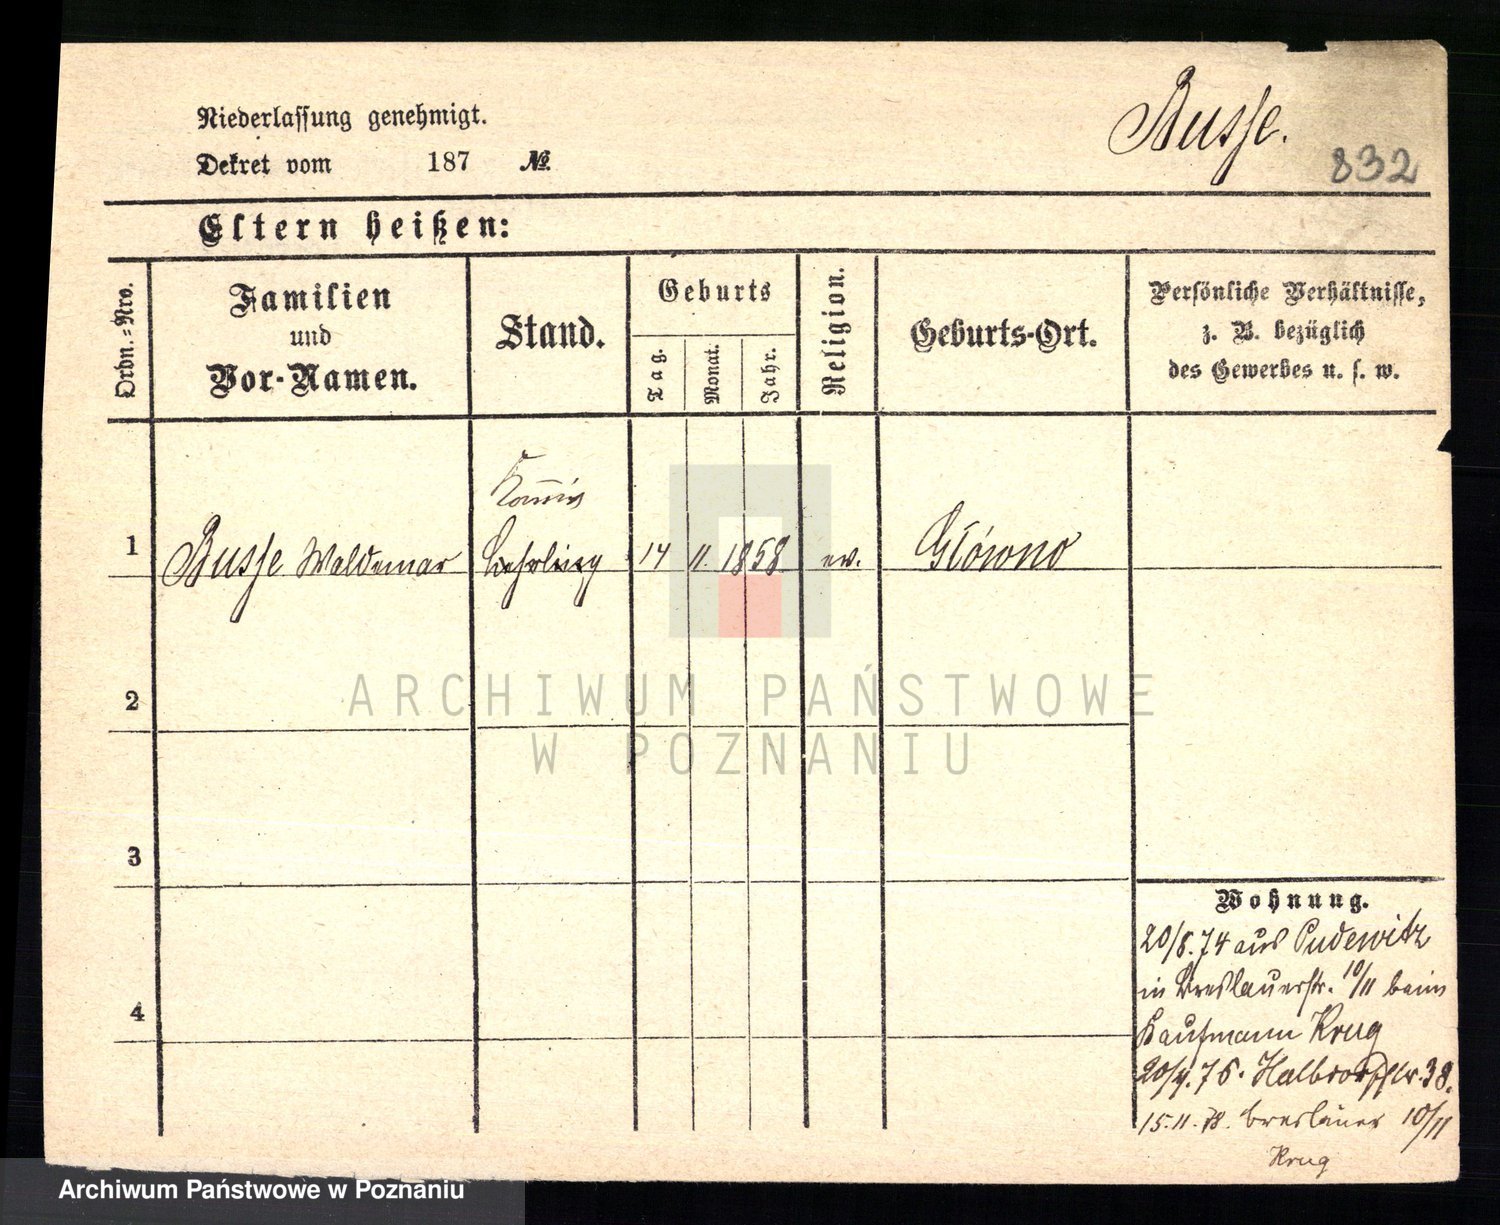 Busse.
832
Niederlassung genehmigt.
Dekret vom 187 №
Eltern heißen:
Ordn.-Nro.
Familien und Vor-Namen.
Stand.
Geburts
Tag.
Monat.
Jahr.
Religion.
Geburts-Ort.
Persönliche Verhältnisse,
z. B. bezüglich
des Gewerbes u. s. w.
Kom̅is
1 Busse Waldemar Lehrling 14 11. 1858 ev. Główno
2
3
4
Wohnung.
20/8. 74 aus Pudewitz
in Breslauerstr. 10/11 beim
Kaufmann Krug
20/4. 76. Halbdorfstr. 38.
15.11.78. Breslauer 10/11
Krug
ARCHIWUM PAŃSTWOWE
W POZNANIU
Archiwum Państwowe w Poznaniu